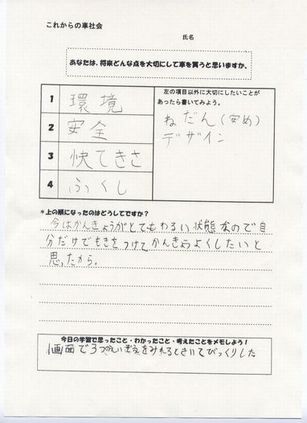 これからの車社会
氏名
あなたは、将来どんな点を大切にして車を買うと思いますか。
1 環境
2 安全
3 快てきさ
4 ふくし
左の項目以外に大切にしたいことがあったら書いてみよう。
ねだん(安め)
デザイン
*上の順になったのはどうしてですか?
今はかんきょうがとてもわるい状態なので自
分だけでもきをつけてかんきょうよくしたいと
思ったから。
今日の学習で思ったこと・わかったこと・考えたことをメモしよう!
1画面で3つ をみれるときいてびっくりした